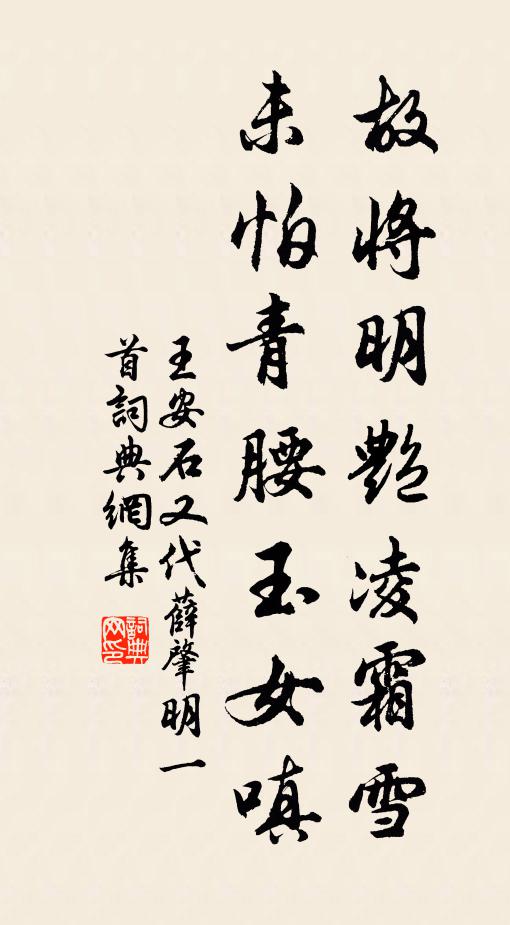 故将明艶凌霜雪
未怕青腰玉女嗔
王安石又代薛肇明一
首詞典網集
詞典网印